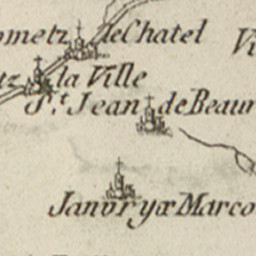 ometz le Chatel
tz la Ville
St. Jean de Beaur
Janvry
Marco